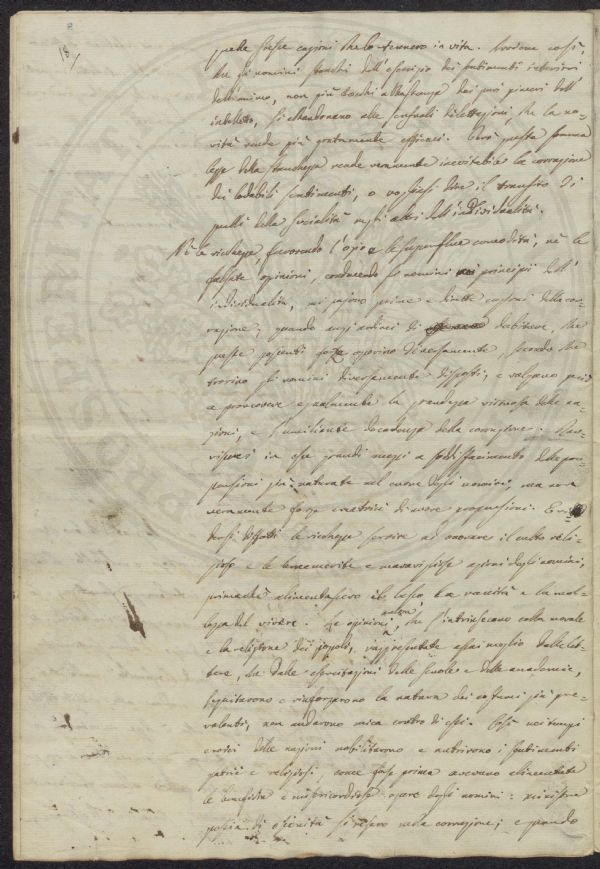 18
quelle stesse cagioni che lo tennero in vita. Avviene così,
che gli uomini stanchi dell'esercizio dei sentimenti interiori
dell'animo, non più tocchi abbastanza dai puri piaceri dell'
intelletto, si abbandonano alle sensuali dilettazioni, che la no-
vità rende più gratamente efficaci. Così questa
legge della stanchezza rende veramente inevitabile la corruzione
dei lodabili sentimenti, o vogliasi dire il transito di
quelli della socialità negli altri dell'individualità.
Nè le ricchezze, favorendo l'ozio e le superflue comodità, nè le
falsate opinioni, conducendo gli uomini principii dell'
individualità, mi paiono prime e dirette cagioni della cor-
ruzione; quando anzi ardirei di dubitare, che
queste potenti forze operino diversamente, secondo che
trovino gli uomini diversamente disposti, e valgano perciò
a promovere egualmente la grandezza virtuosa delle na-
zioni, e l'umiliante decadenza della corruzione.
in esse grandi mezzi a soddisfacimento delle pro-
pensioni più naturate nel cuore degli uomini, ma non
veramente forze creatrici di nuove propensioni.
difatti le ricchezze servire ad onorare il culto reli-
gioso e le benemerite e maravigliose azioni degli uomini,
primachè alimentassero il lusso la vanità e la mol-
lezza del vivere. Le opinioni che s'intrinsecano colla morale
e la religione dei popoli, rappresentate assai meglio dalle let-
tere, che dalle esercitazioni delle scuole e delle accademie,
seguitarono e rinforzarono la natura dei costumi più pre-
valenti, non andarono mica contro di essi. Così nei tempi
eroici delle nazioni nobilitarono e nutrirono i sentimenti
patrii e religiosi, come forse prima avevano alimentate
le benefiche e misericordiose opere degli uomini:
poscia di oscenità si resero nella corruzione; e quando